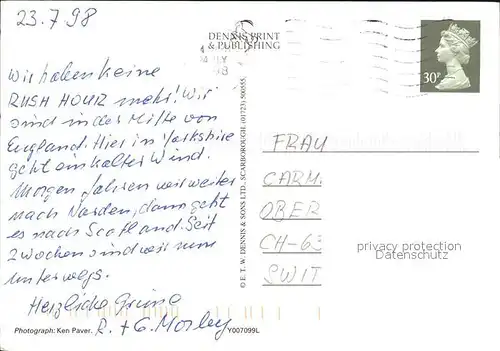 23.7.98
DENNIS PRINT
& PUBLISHING
30P
Wir haben keine
RUSH HOUR mehr! Wir
sind in der Mitte von
England. Hier in Yorkshire
geht ein kalter Wind.
Morgen fahren wir weiter
nach Norden, dann geht
es nach Scotland. Seit
2 Wochen sind wir nun
unterwegs.
Herzliche Grüsse
R. + G. Morley
© E. T. W. DENNIS & SONS LTD., SCARBOROUGH. (01723) 500555.
FRAU
CARM.
OBER
CH-63
SWIT
privacy protection
Datenschutz
Photograph: Ken Paver.
Y007099L